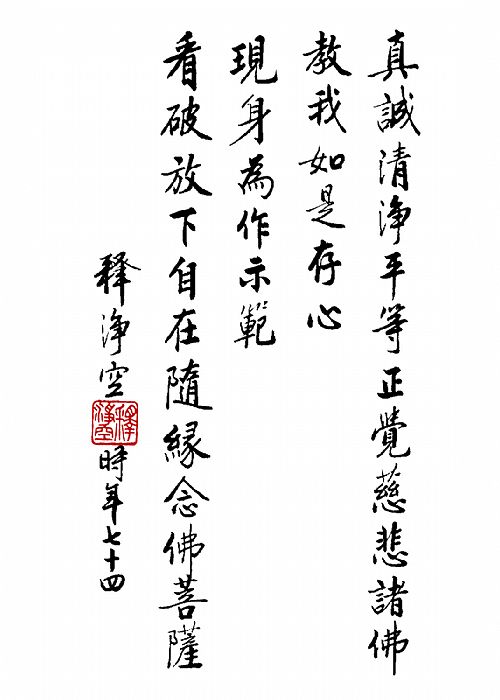 真誠清淨平等正覺慈悲諸佛
教我如是存心
現身為作示範
看破放下自在隨緣念佛菩薩
釋淨空
釋淨空
時年七十四